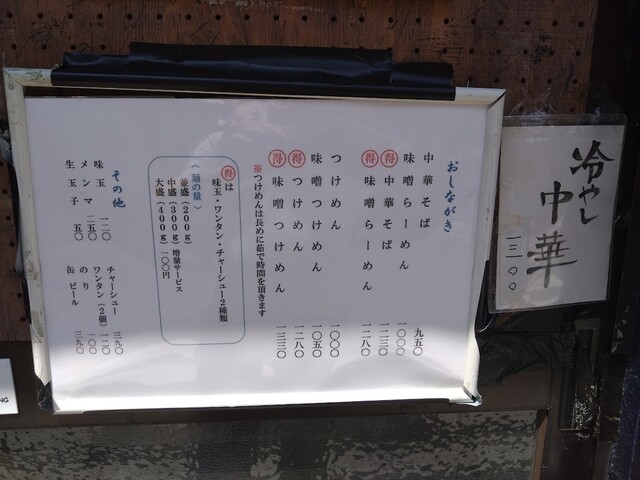 冷やし
中華
一三〇〇
おしながき
中華そば 九五〇
味噌らーめん 一〇〇〇
得 中華そば 一二三〇
得 味噌らーめん 一二八〇
つけめん 一〇〇〇
味噌つけめん 一〇五〇
得 つけめん 一二八〇
得 味噌つけめん 一三三〇
※つけめんは長めに茹で時間を頂きます
得は
味玉・ワンタン・チャーシュー2種類
〈麺の量〉
並盛(200g)
中盛(300g)増量サービス
大盛(400g)一〇〇円
その他
味玉 一二〇
メンマ 二五〇
生玉子 五〇
チャーシュー 三九〇
ワンタン(2個) 一二〇
のり 一〇〇
缶ビール 三九〇